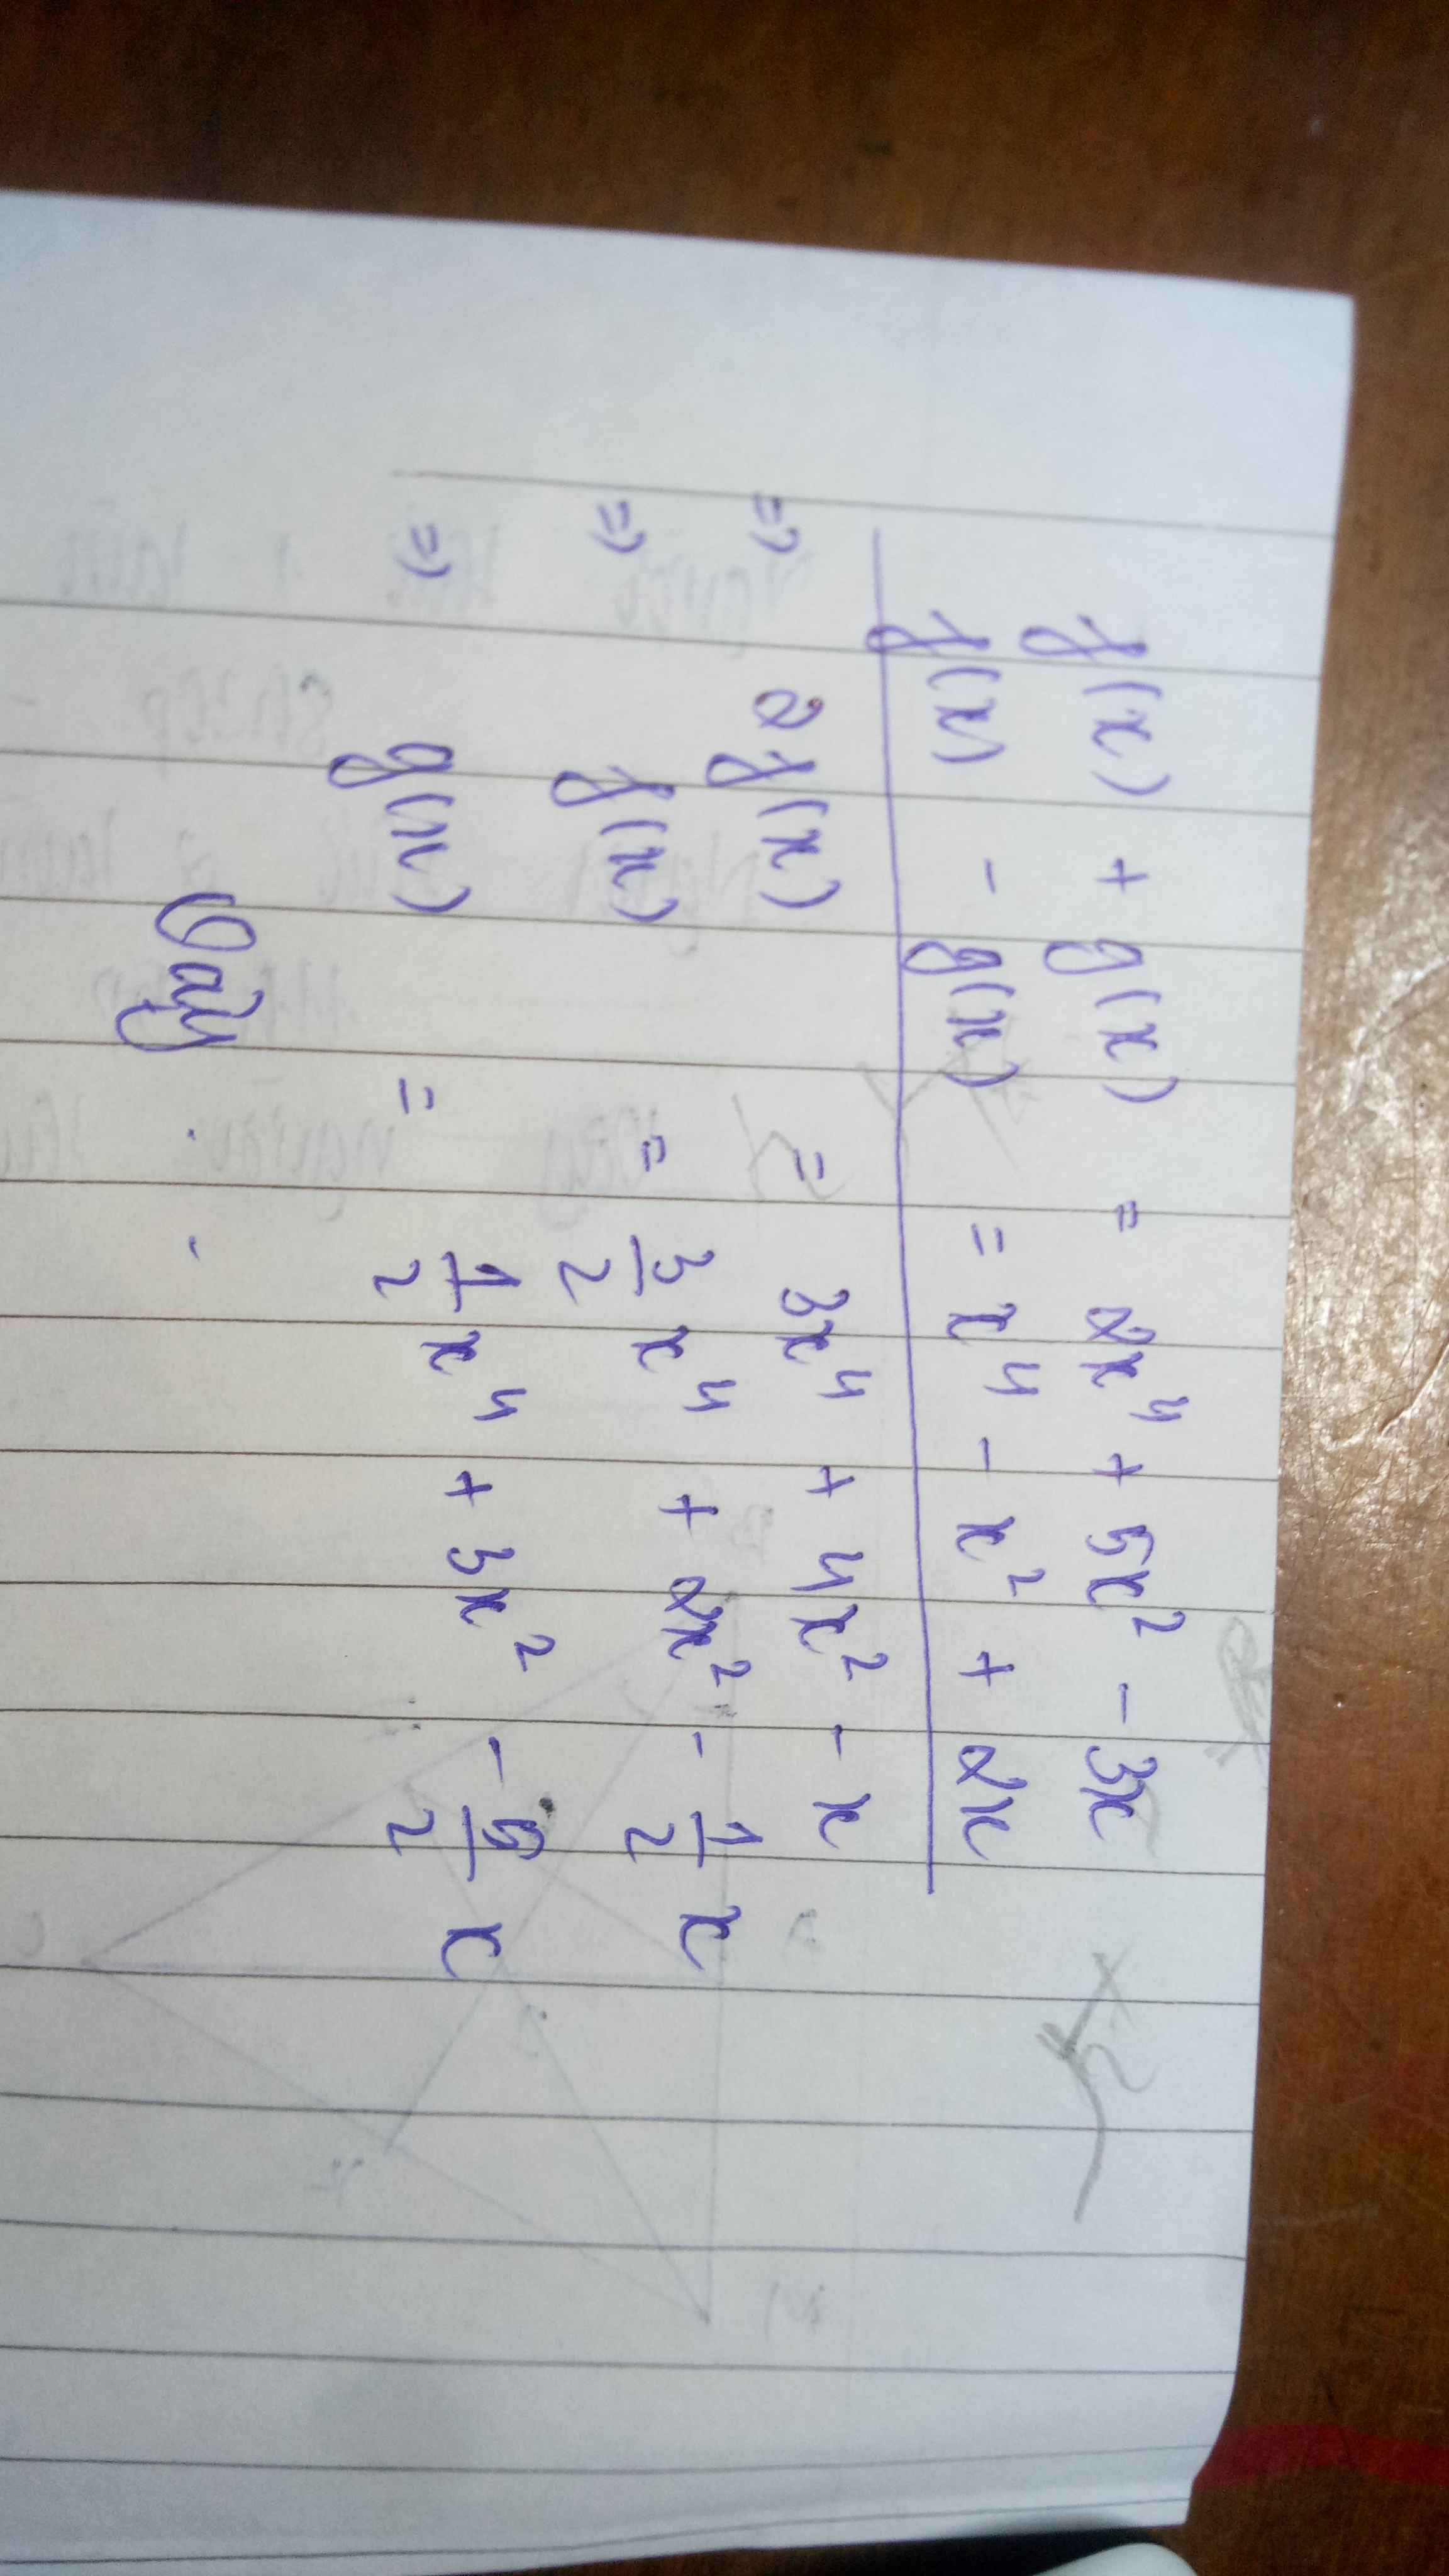 f(x) + g(x) = 2x⁴ + 5x² - 3x
f(x) - g(x) = x⁴ - x² + 2x
=> 2f(x) = 3x⁴ + 4x² - x
=> f(x) = 3/2 x⁴ + 2x² - 1/2 x
=> g(x) = 1/2 x⁴ + 3x² - 5/2 x
Vậy . .